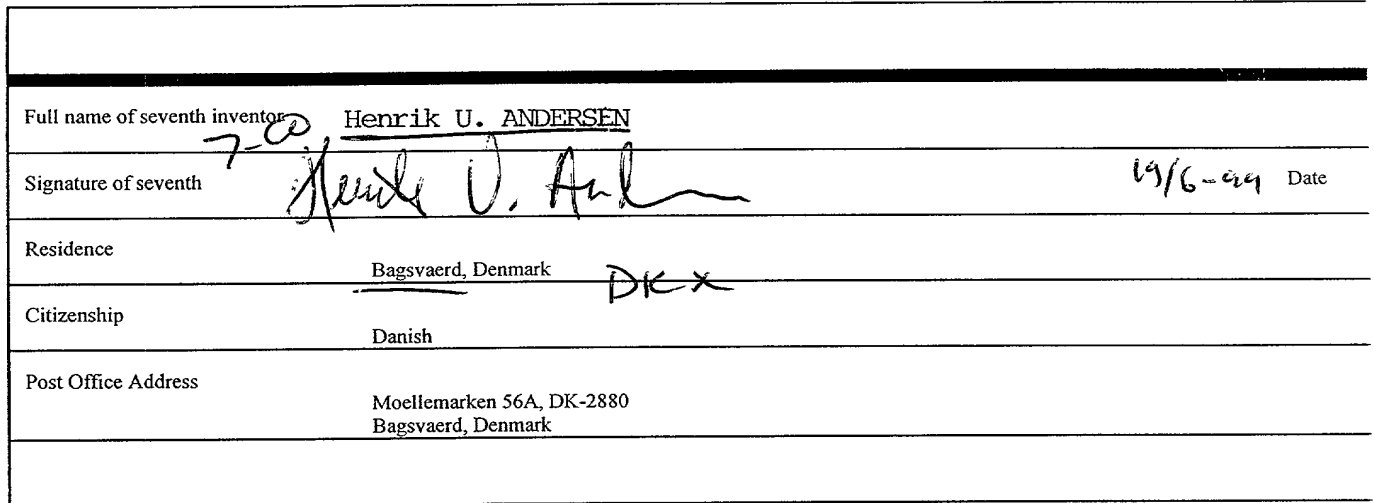 Full name of seventh inventor Henrik U. ANDERSEN
7-00
Signature of seventh Henrik U. And 19/6-99 Date
Residence
Bagsvaerd, Denmark DKX
Citizenship
Danish
Post Office Address
Moellemarken 56A, DK-2880
Bagsvaerd, Denmark